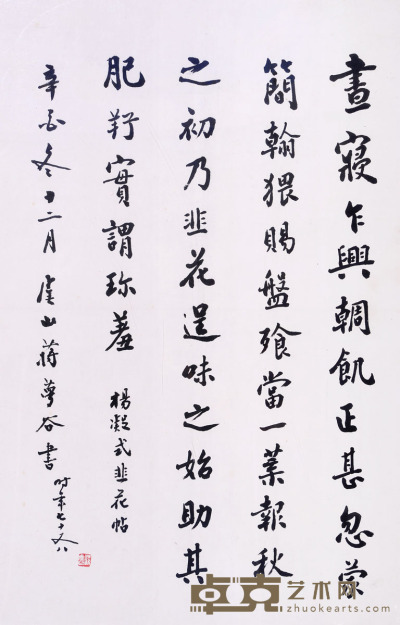 晝寢乍興輖飢正甚忽蒙
簡翰猥賜盤飧當一葉報秋
之初乃韭花逞味之始助其
肥羜實謂珎羞 楊凝式韭花帖
辛酉冬十二月虞山蔣谷書 時年七十又八
卓克艺术网
zhuokearts.com